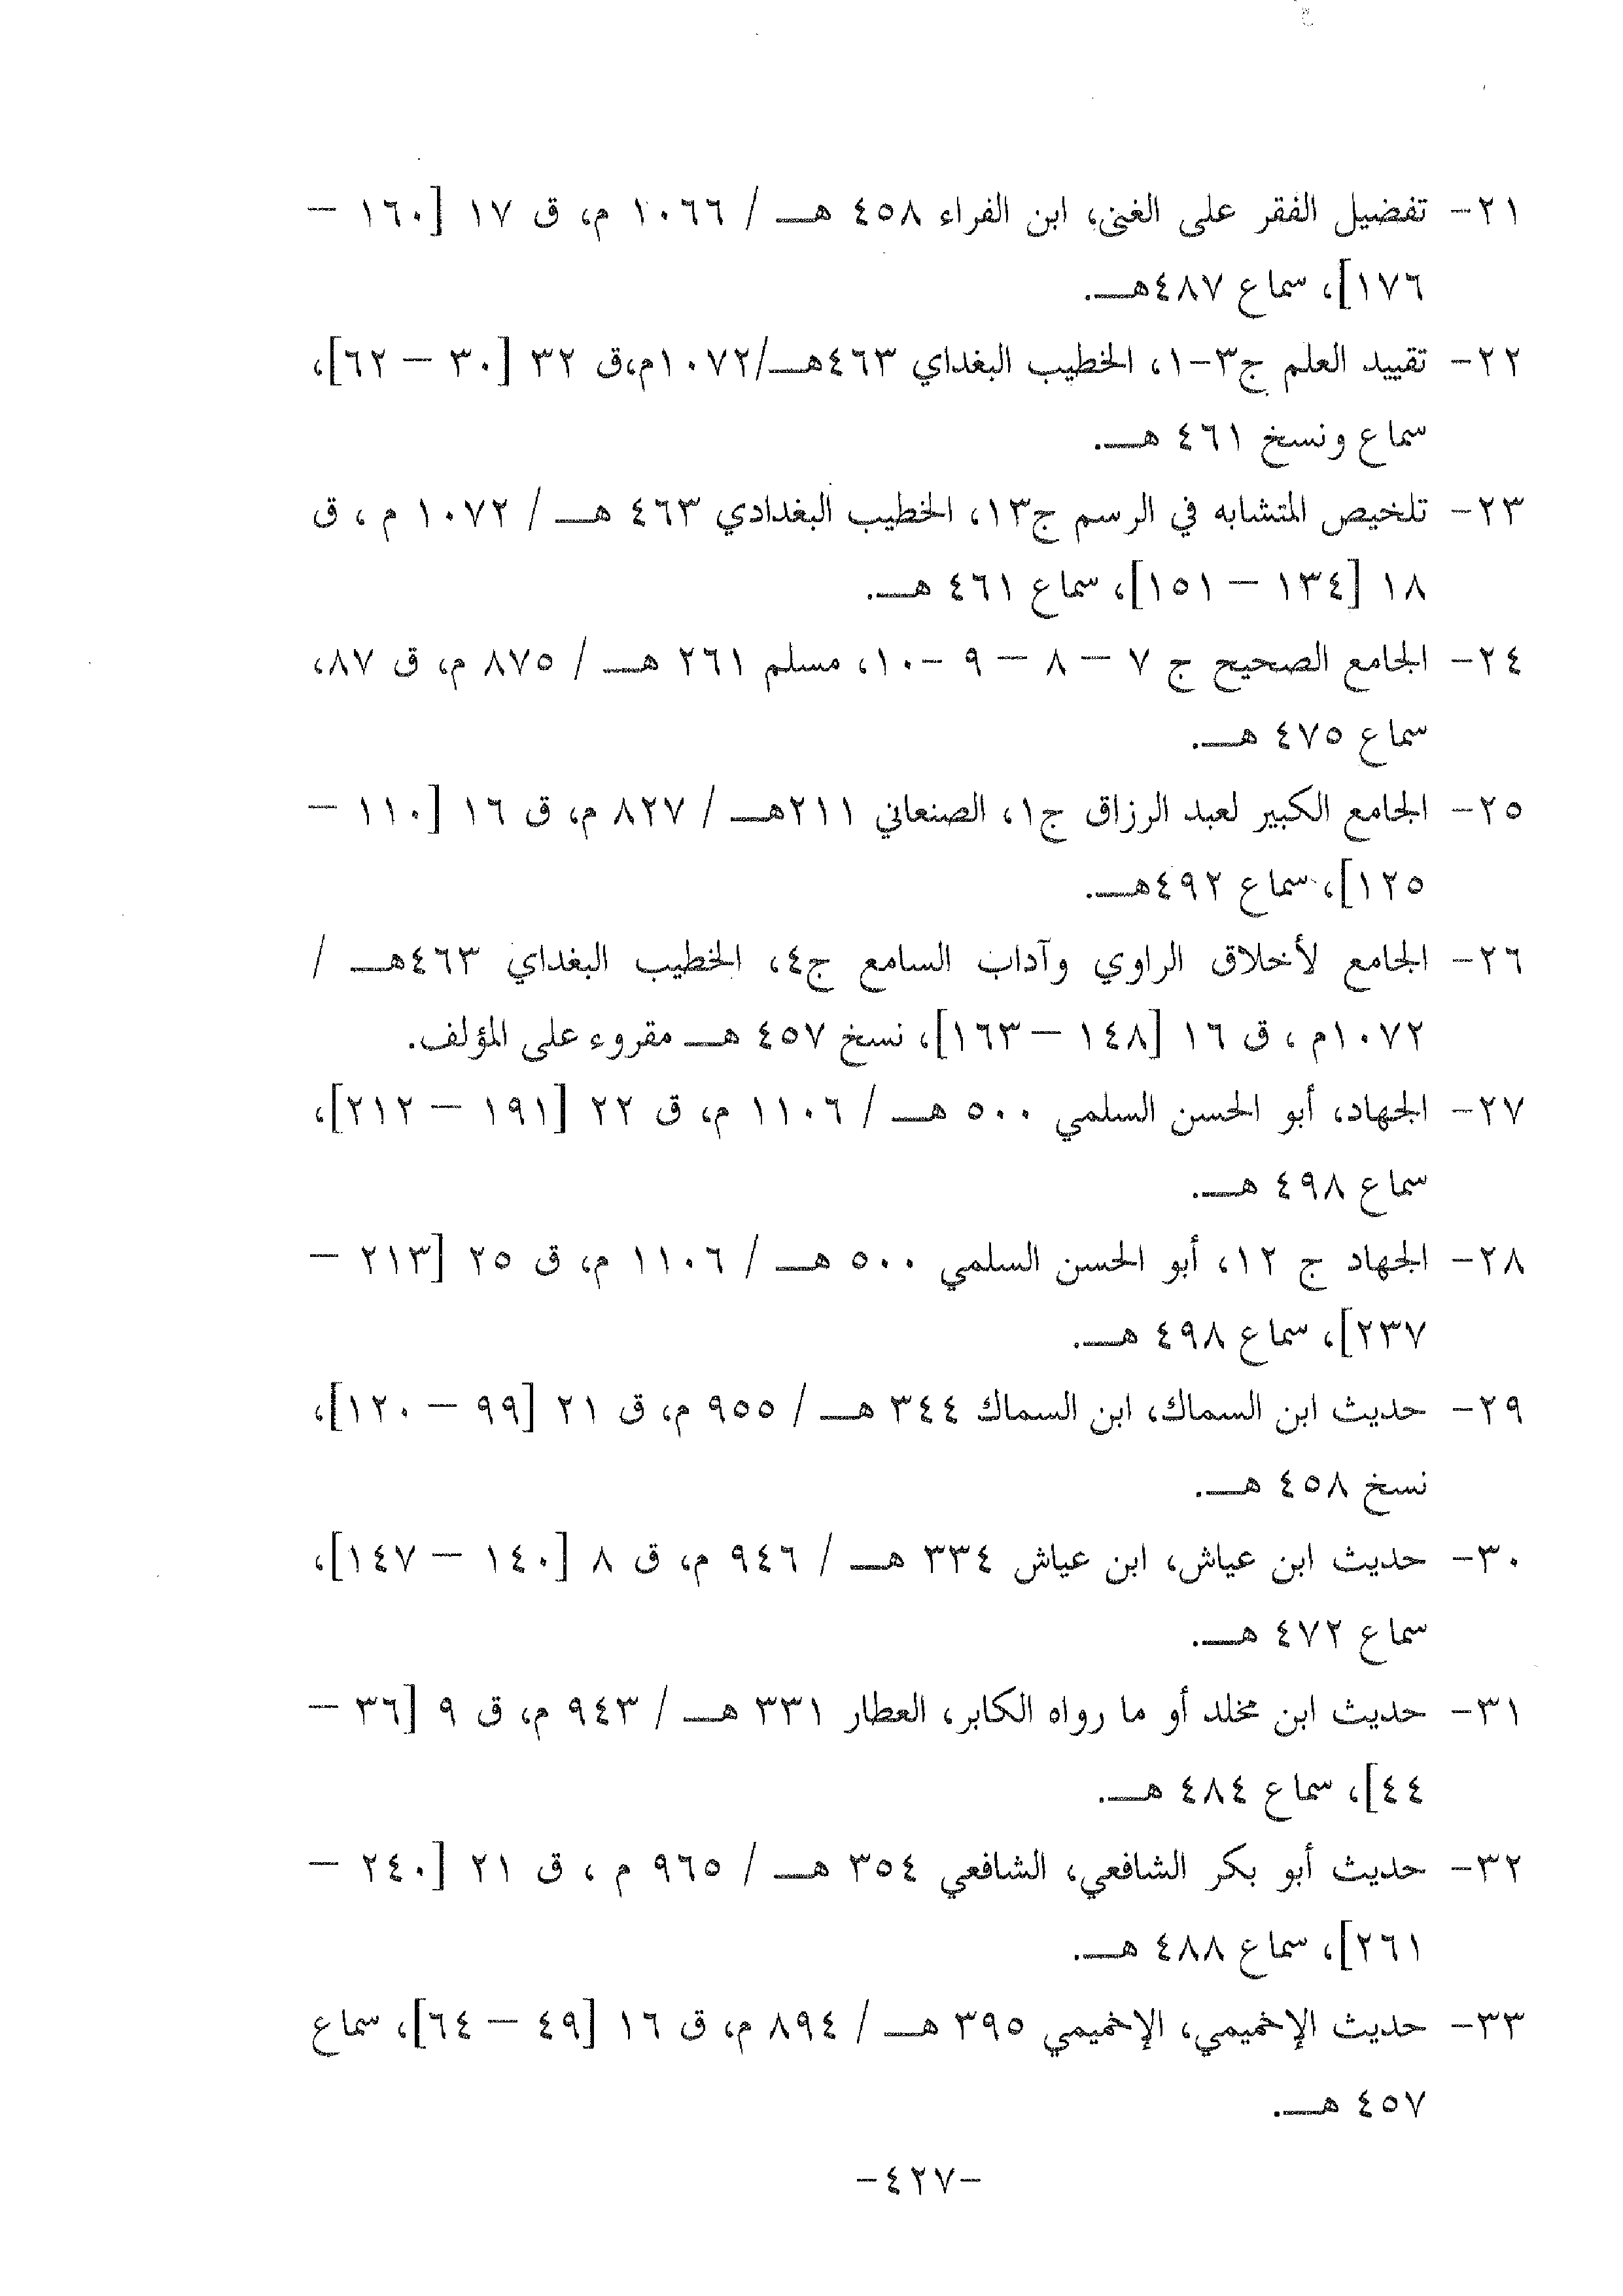 ٢١- تفضيل الفقر على الغنى، ابن الفراء ٤٥٨ هـ / ١٠٦٦ م، ق ١٧ [١٦٠ –
١٧٦]، سماع ٤٨٧هـ.
٢٢- تقييد العلم ج٣-١، الخطيب البغداي ٤٦٣هـ/١٠٧٢م،ق ٣٢ [٣٠ – ٦٢]،
سماع ونسخ ٤٦١ هـ.
٢٣- تلخيص المتشابه في الرسم ج١٣، الخطيب البغدادي ٤٦٣ هـ / ١٠٧٢ م ، ق
١٨ [١٣٤ – ١٥١]، سماع ٤٦١ هـ.
٢٤- الجامع الصحيح ج ٧ – ٨ – ٩ -١٠، مسلم ٢٦١ هـ / ٨٧٥ م، ق ٨٧،
سماع ٤٧٥ هـ.
٢٥- الجامع الكبير لعبد الرزاق ج١، الصنعاني ٢١١هـ / ٨٢٧ م، ق ١٦ [١١٠ –
١٢٥]، سماع ٤٩٢هـ.
٢٦- الجامع لأخلاق الراوي وآداب السامع ج٤، الخطيب البغداي ٤٦٣هـ /
١٠٧٢م ، ق ١٦ [١٤٨ – ١٦٣]، نسخ ٤٥٧ هـ مقروء على المؤلف.
٢٧- الجهاد، أبو الحسن السلمي ٥٠٠ هـ / ١١٠٦ م، ق ٢٢ [١٩١ – ٢١٢]،
سماع ٤٩٨ هـ.
٢٨- الجهاد ج ١٢، أبو الحسن السلمي ٥٠٠ هـ / ١١٠٦ م، ق ٢٥ [٢١٣ –
٢٣٧]، سماع ٤٩٨ هـ.
٢٩- حديث ابن السماك، ابن السماك ٣٤٤ هـ / ٩٥٥ م، ق ٢١ [٩٩ – ١٢٠]،
نسخ ٤٥٨ هـ.
٣٠- حديث ابن عياش، ابن عياش ٣٣٤ هـ / ٩٤٦ م، ق ٨ [١٤٠ – ١٤٧]،
سماع ٤٧٢ هـ.
٣١- حديث ابن مخلد أو ما رواه الكابر، العطار ٣٣١ هـ / ٩٤٣ م، ق ٩ [٣٦ –
٤٤]، سماع ٤٨٤ هـ.
٣٢- حديث أبو بكر الشافعي، الشافعي ٣٥٤ هـ / ٩٦٥ م ، ق ٢١ [٢٤٠ –
٢٦١]، سماع ٤٨٨ هـ.
٣٣- حديث الإخميمي، الإخميمي ٣٩٥ هـ / ٨٩٤ م، ق ١٦ [٤٩ – ٦٤]، سماع
٤٥٧ هـ.
-٤٢٧-